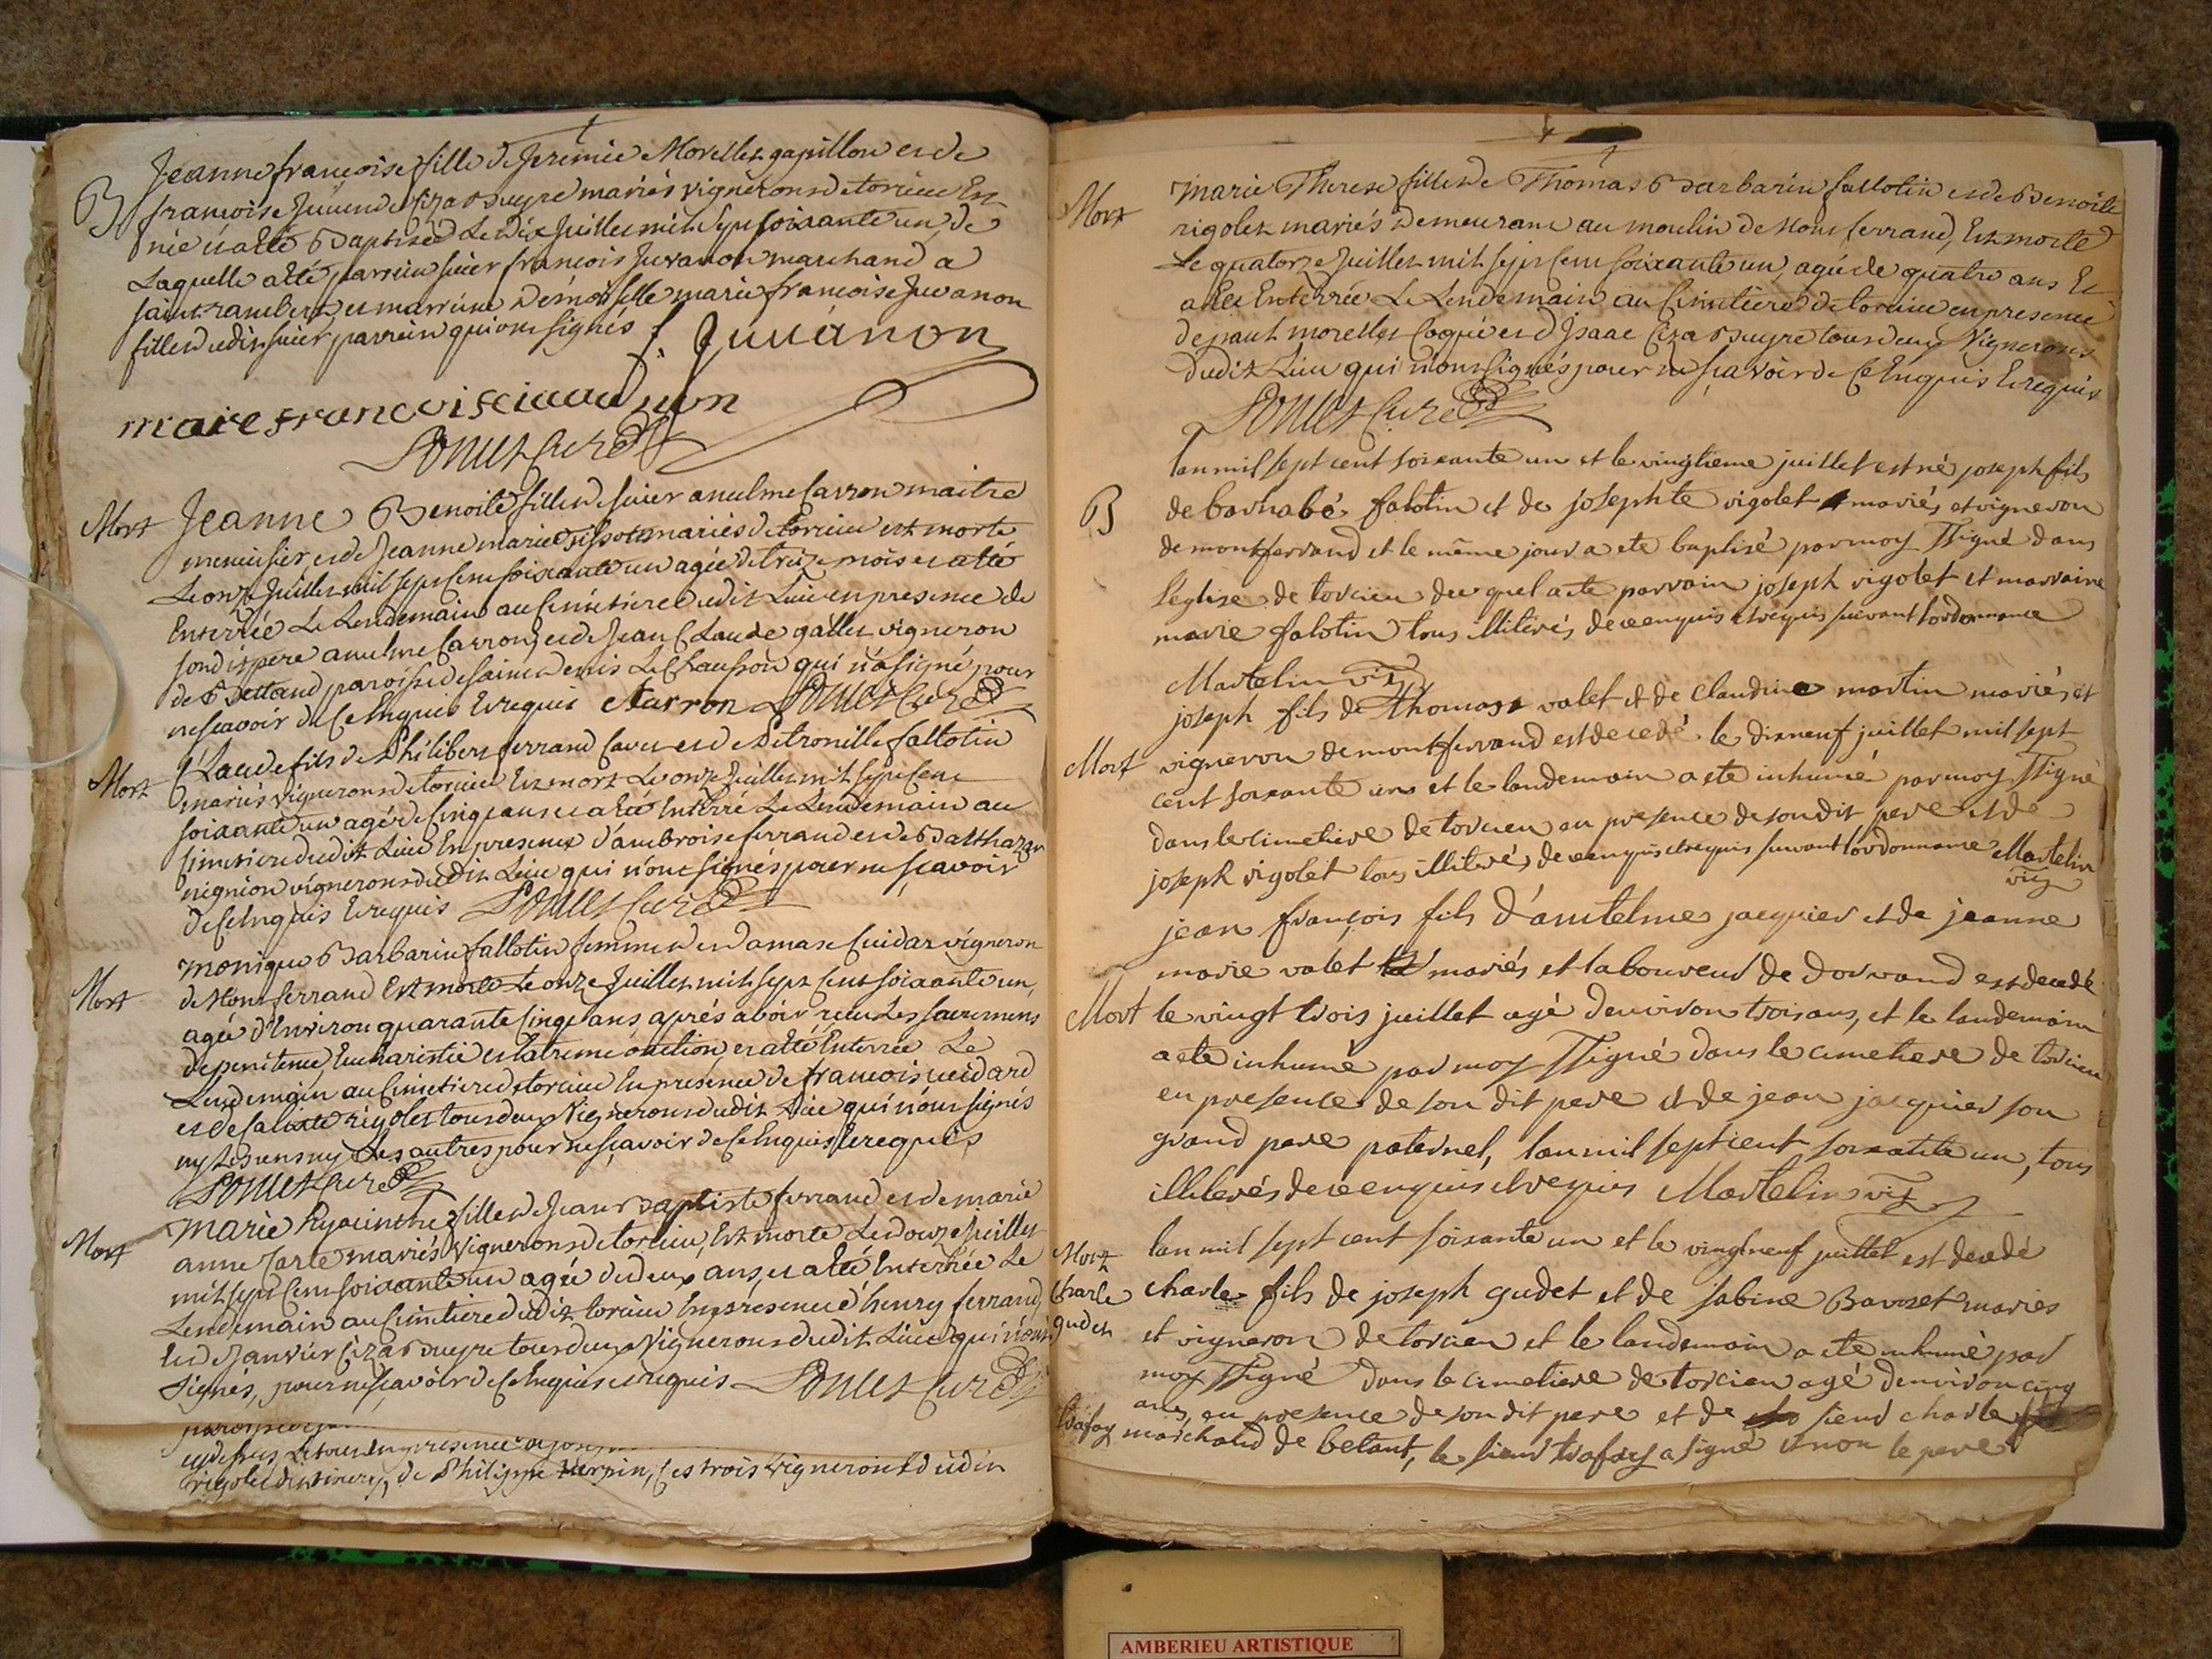 Jeanne françoise fille de Jeremie Morellet gapillon et de
B
françoise Juuend Ciza Buyre mariés vignerons de torcieu Est
née et a été Baptisée Le dix Juillet mil sept soixante un, de
Laquelle a été parrain sieur françois Juvanon marchand a
saint rambert, et marraine Demoiselle marie françoise Juvanon
fille dudit sieur parrain qui ont signés f. Juuanon
marie francoise
Ponset Curé
Mort
Jeanne Benoite fille de sieur anselme Carron maitre
menuisier et de Jeanne marie mariés de torcieu est morte
Le onze Juillet mil sept Cent soixante un agée de treize mois et a été
Enterrée Le Lendemain au Cimetiere dudit Lieu en presence de
sondit pere anselme Carron, et de Jean Claude gallet vigneron
de Bettand paroisse de saint denis Le Chausson qui n'a signé pour
ne scavoir de Ce Enquis Erequis Carron Ponset Curé
Mort
Claude fils de Philibert ferrand Cavet et de Petronille fallotin
mariés vignerons de torcieu Est mort Le onze Juillet mil sept Cent
soixante un agé de Cinq ans et a été Enterré Le Lendemain au
Cimetiere dudit Lieu En presence d'ambroise ferrand et de Balthazar
mignion vignerons dudit Lieu qui n'ont signés pour ne scavoir
de Ce Enquis Erequis Ponset Curé
Mort
Monique Barbarin fallotin femme de damase Cuidar vigneron
de Mont ferrand Est morte Le onze Juillet mil sept Cent soixante un,
agée d'Environ quarante Cinq ans, aprés avoir reçu Les sacremens
de penitence Eucharistie et Extreme onction, et a été Enterrée Le
Lendemain au Cimetiere de torcieu En presence de françois cuidard
et de Calixte rigolet tous deux Vignerons dudit Lieu qui n'ont signés
ny Les uns ny Les autres pour ne sçavoir de Ce Enquis Erequis
Ponset Curé
Mort
Marie hyacinthe fille de Jean Baptiste ferrand et de marie
anne Jarle mariés Vignerons de torcieu, Est morte Le douze Juillet
mil sept Cent soixante un agée de deux ans, et a été Enterrée Le
Lendemain au Cimetiere dudit torcieu En presence d'henry ferrand,
Et de Janvier Ciza Buyre tous deux Vignerons dudit Lieu qui n'ont
signés, pour ne scavoir de Ce Enquis Erequis Ponset Curé
de Philippe, Ces trois Vignerons dudit
Mort
Marie Therese fille de Thomas Barbarin fallotin et de Benoite
rigolet mariés Demeurant au moulin de Mont ferrand, Est morte
Le quatorze Juillet mil sept Cent soixante un, agée de quatre ans Et
a été Enterrée Le Lendemain au Cimetiere de torcieu en presence
de paul morellet Coqué et d'Isaac Ciza Buyre tous deux Vignerons
dudit Lieu qui n'ont signés pour ne scavoir de Ce Enquis Erequis
Ponset Curé
B
lan mil sept cent soixante un et le vingtieme juillet est né joseph fils
de barnabé falotin et de josephte rigolet mariés et vigneron
de montferrand et le même jour a ete baptisé par moy ssigné dans
leglise de torcieu du quel a ete parrain joseph rigolet et marraine
marie falotin tous illiterés de ce enquis et requis suivant lordonnance
Martelin vic
Mort
joseph fils de Thomas valet et de claudine martin mariés et
vigneron de montferrand est decedé le dixneuf juillet mil sept
cent soixante un et le landemain a ete inhumé par moy ssigné
dans le cimetiere de torcieu en presence de son dit pere et de
joseph rigolet tous illiterés de ce enquis et requis suivant lordonnance Martelin
vic
jean françois fils d'antelme jacquier et de jeanne
marie valet mariés et laboureur de dorvand est decedé
Mort
le vingt trois juillet agé denviron trois ans, et le landemain
a ete inhumé par moy ssigné dans le cimetiere de torcieu
en presence de son dit pere et de jean jacquier son
grand pere paternel, lan mil sept cent soixante un, tous
illiterés de ce enquis et requis Martelin vic
Mort
Charle
gudet
lan mil sept cent soixante un et le vingt neuf juillet est decedé
charle fils de joseph gudet et de sabine Bavoset mariés
et vigneron de torcieu et le landemain a ete inhumé par
moy ssigné dans le cimetiere de torcieu agé denviron cinq
ans, en presence de son dit pere et de sieur charle
trafay marchand de betant, le sieur trafay a signé et non le pere
AMBERIEU ARTISTIQUE